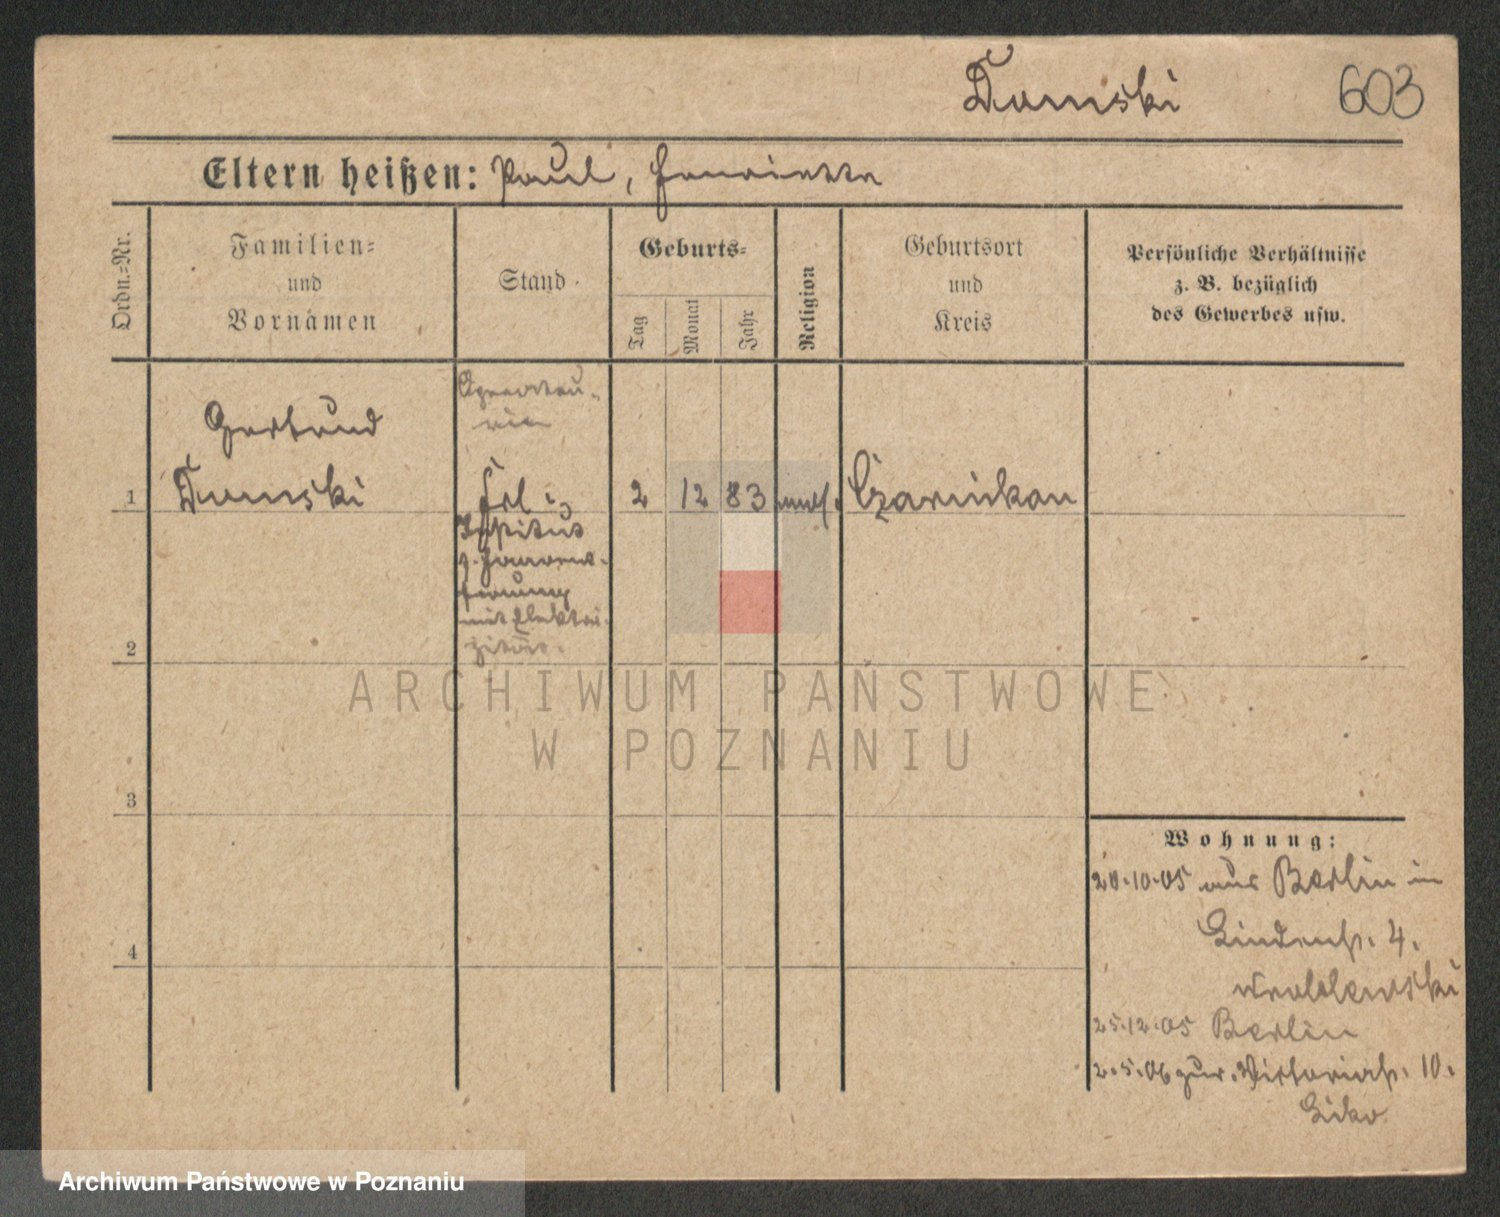 Tomski
603
Eltern heißen: Paul, Henriette
Ordn.=Nr.
Familien=
und
Vornamen
Stand
Geburts=
Tag
Monat
Jahr
Religion
Geburtsort
und
Kreis
Persönliche Verhältnisse
z. B. bezüglich
des Gewerbes usw.
Gertrud
1 Tomski
Frl
2 12 83
Czarnikau
Institut
z.
mit Elektri-
zität.
2
3
4
Wohnung:
20.10.05 aus Berlin in
Lindenstr. 4.
25.12.05 Berlin
2.5.06 zur. Viktoriastr. 10.
ARCHIWUM PAŃSTWOWE
W POZNANIU
Archiwum Państwowe w Poznaniu